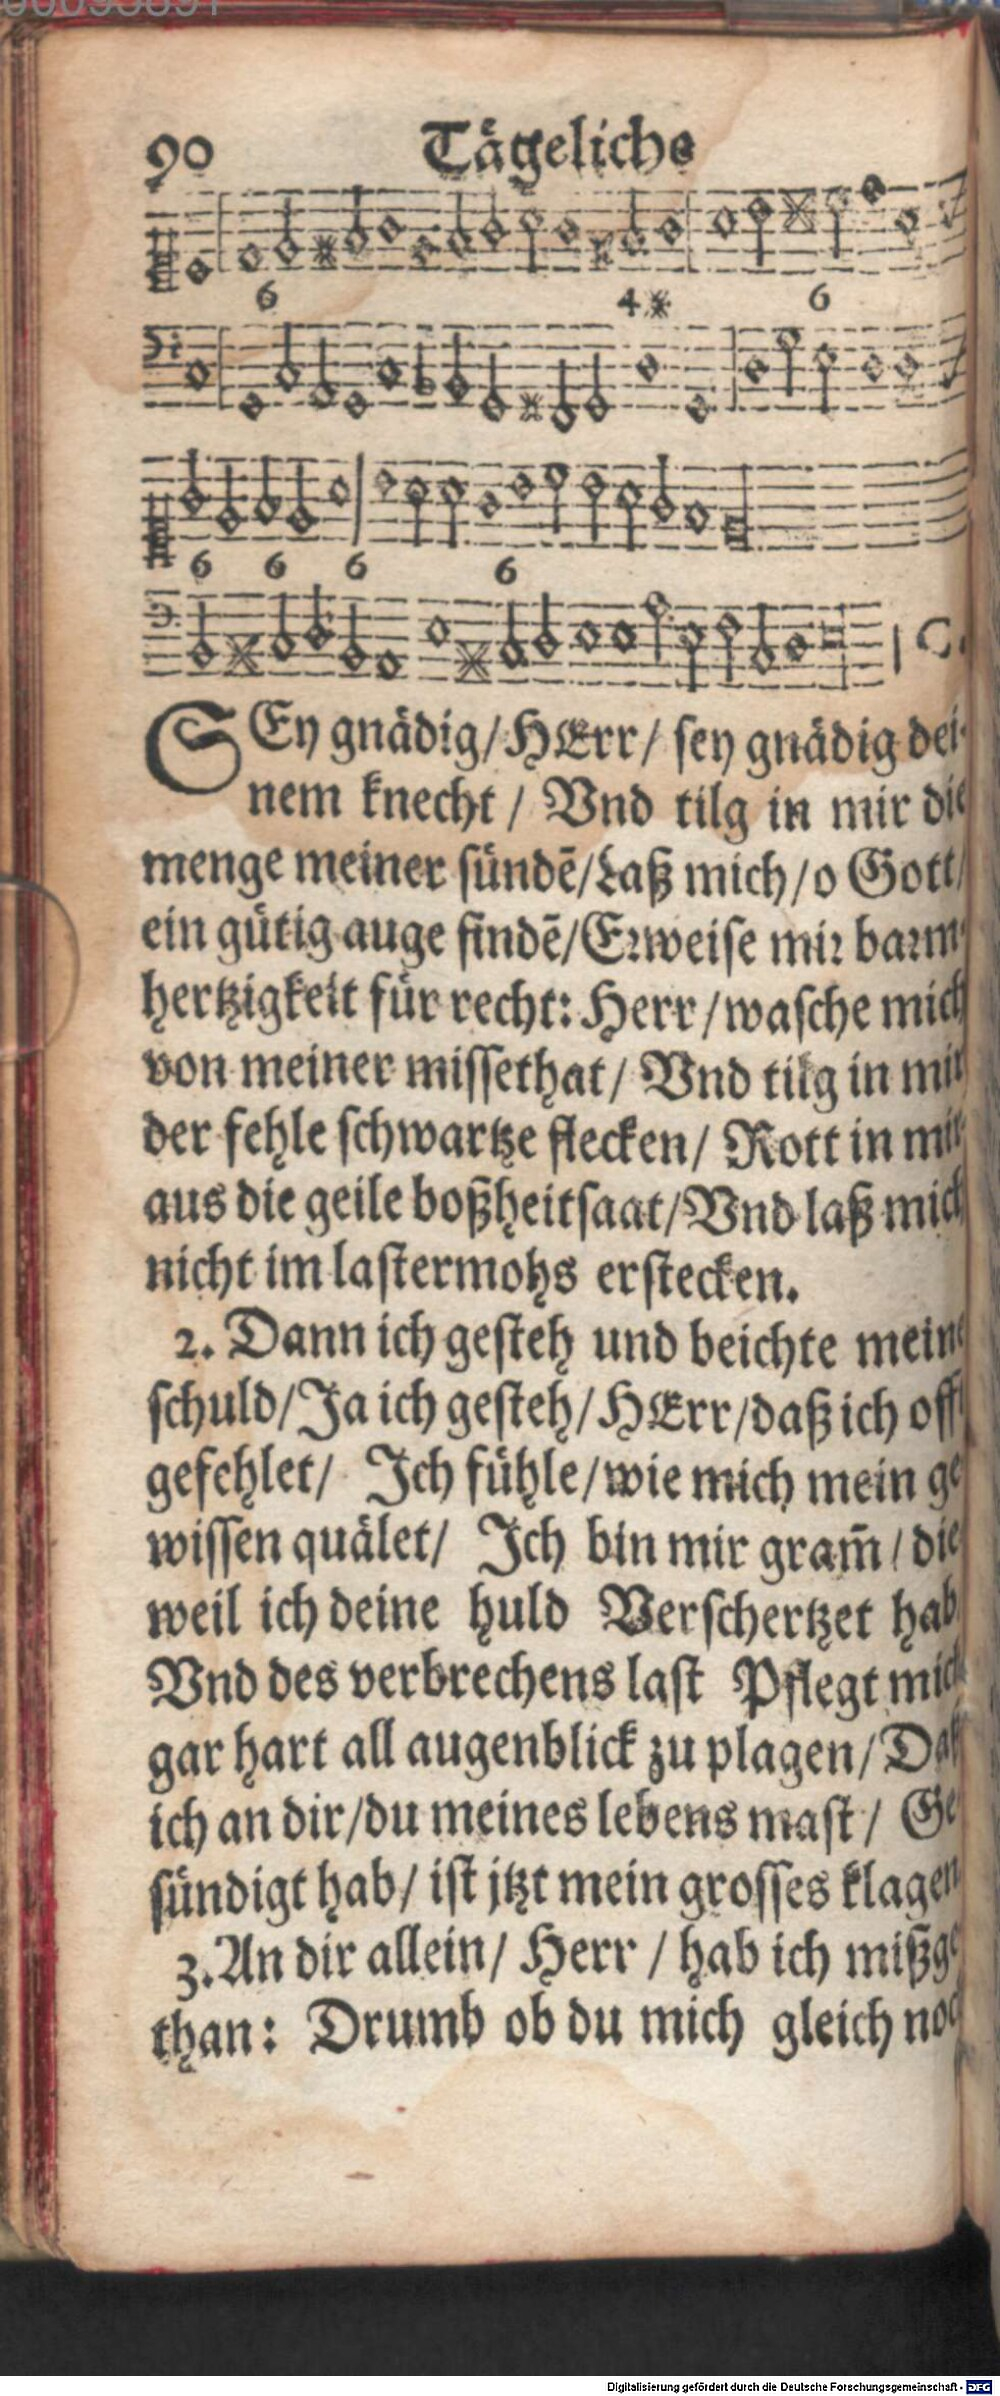 90 Tägeliche
6 4 6
6 6 6 6
SEy gnädig/ HErr/ sey gnädig dei⸗
nem knecht / Vnd tilg in mir die
menge meiner sündē/Laß mich/o Gott/
ein gütig auge findē/Erweise mir barm⸗
hertzigkeit für recht: Herr /wasche mich
von meiner missethat/ Vnd tilg in mir
der fehle schwartze flecken/ Rott in mir
aus die geile boßheitsaat/Vnd laß mich
nicht im lastermohs erstecken.
2. Dann ich gesteh und beichte meine
schuld/Ja ich gesteh/ HErr/daß ich offt
gefehlet/ Ich fühle/wie mich mein ge
wissen quälet/ Ich bin mir gram̄/ die
weil ich deine huld Verschertzet hab
Vnd des verbrechens last Pflegt mich
gar hart all augenblick zu plagen/ Daß
ich an dir/du meines lebens mast/ Ge
sündigt hab/ ist jtzt mein grosses klagen
3. An dir allein/ Herr / hab ich mißge
than: Drumb ob du mich gleich noch
Digitalisierung gefördert durch die Deutsche Forschungsgemeinschaft - DFG